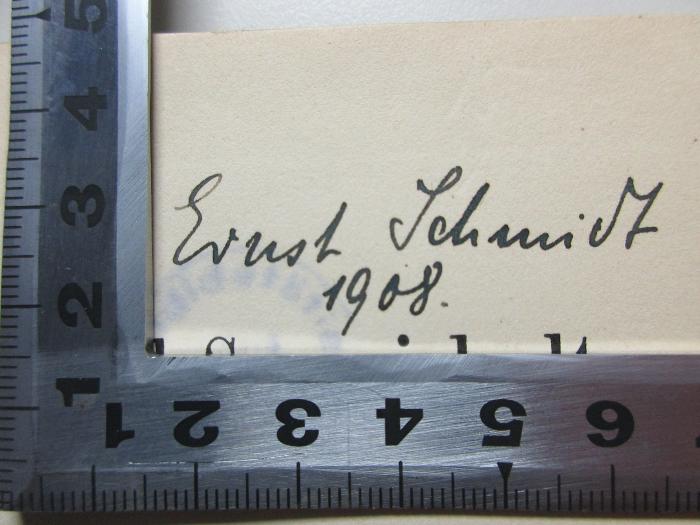 Ernst Schmidt
1908.
5
4
3
2
1
1 2 3 4 5 6